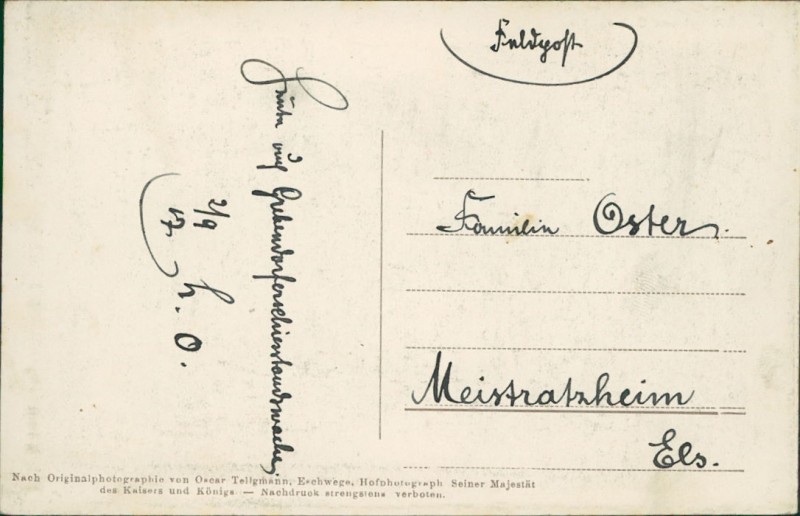 Feldpost
Heute auf Grebendorferschiesstandswache,
2/9
17
L. O.
Familie Oster
Meistratzheim
Els.
Nach Originalphotographie von Oscar Tellgmann, Eschwege, Hofphotograph Seiner Majestät
des Kaisers und Königs — Nachdruck strengstens verboten.